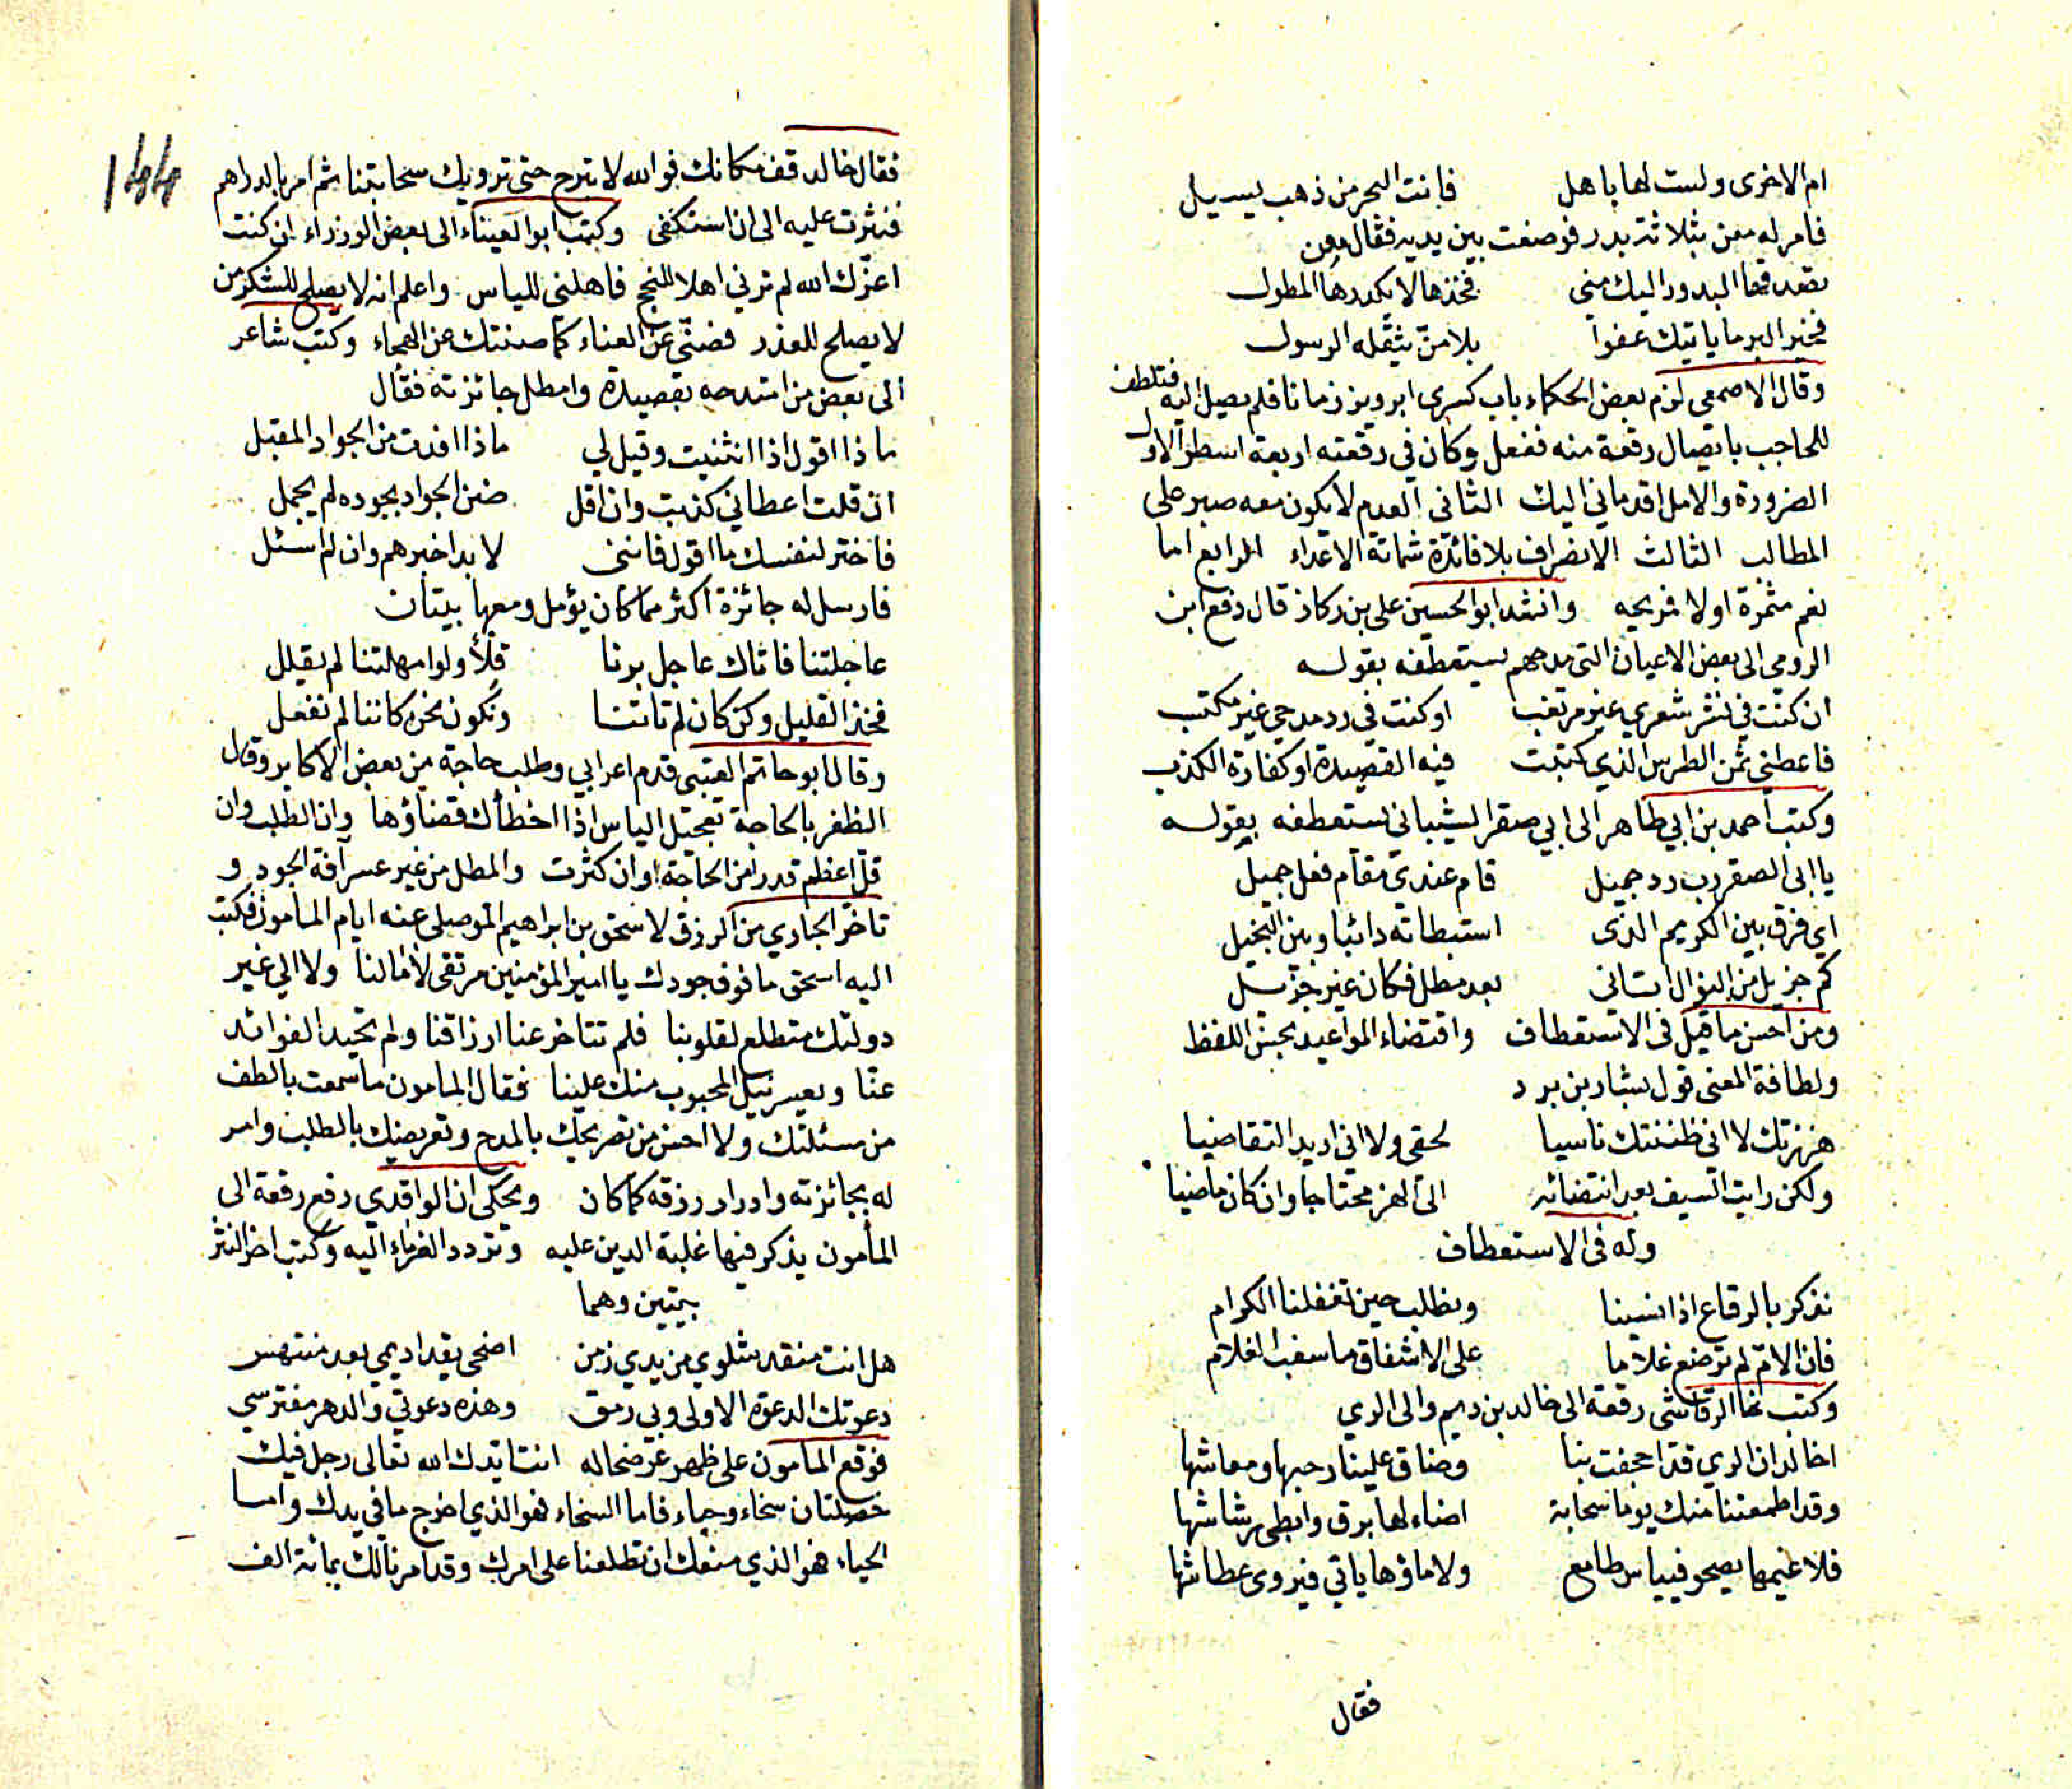 ام الاخرى ولست لها باهل فانت البحر من ذهب يسيل
فامر له معن بثلاثة بدر فوضعت بين يديه فقال معن
بعد فيها البدور اليك مني فخذها لا يكدرها المطول
فخير البر ما ياتيك عفوا بلا من يثقله الرسول
وقال الاصمعي لزم بعض الحكماء باب كسرى ابرويز زمانا فلم يصل اليه فتلطف
للحاجب بايصال رقعة منه ففعل وكان في رقعته اربعة اسطر الاول
الضرورة والامل اقدماني اليك الثاني العدم لا يكون معه صبر على
المطالب الثالث الانصراف بلا فائدة شماتة الاعداء الرابع اما
نعم مثمرة او لا مريحه وانشد ابو الحسين على بن ركاز قال دفع ابن
الرومي الى بعض الاعيان التي مدحهم يستعطفه بقوله
ان كنت في نشر شعري غير مرتغب او كنت في رد مدحي غير مكتب
فاعطني ثمن الطرس الذي كتبت فيه القصيدة او كفارة الكذب
وكتب احمد بن ابي طاهر الى ابي صقر الشيباني يستعطفه بقوله
يا ابى الصقر رب رد جميل قام عندي مقام فعل جميل
اي فرق بين الكريم الذى استبطاته دائبا وبين البخيل
كم جزيل من النوال اتانى بعد مطل فكان غير جزيل
ومن احسن ما قيل فى الاستعطاف واقتضاء المواعيد بحسن اللفظ
ولطافة المعنى قول بشار بن برد
هززتك لا انى ظننتك ناسيا لحقى ولا انى اريد التقاضيا
ولكن رايت السيف بعد انتضائه الى الهز محتاجا وان كان ماضيا
وله فى الاستعطاف
نذكر بالرقاع اذا نسينا ونطلب حين تغفلنا الكرام
فان الام لم ترضع غلاما على الاشفاق ما سغب الغلام
وكتب الرقاشى رقعة الى خالد بن ديم والى الري
اخالد ان الري قد اجحفت بنا وضاق علينا رحبها ومعاشها
وقد اطمعتنا منك يوما سحابة اضاء لها برق وابطى رشاشها
فلا غيمها يصحو فيياس طامع ولا ماؤها ياتي فيروى عطاشها
فقال
١٤٤
فقال خالد قف مكانك فوالله لا تبرح حتى ترويك سحابتنا ثم امر بالدراهم
فنثرت عليه الى ان استكفى وكتب ابو العيناء الى بعض الوزراء ان كنت
اعزك الله لم ترني اهلا للنجح فاهلني للياس واعلم انه لا يصلح للشكر من
لا يصلح للعذر فصني عن العناء كما صنتك عن الهجاء وكتب شاعر
الى بعض من امتدحه بقصيدة وامطل جائزته فقال
ماذا اقول اذا انثنيت وقيل لي ماذا افدت من الجواد المقبل
ان قلت اعطاني كذبت وان اقل ضن الجواد بجوده لم يجمل
فاختر لنفسك ما اقول فاننى لا بد اخبرهم وان لم اسئل
فارسل له جائزة اكثر مما كان يؤمل ومعها بيتان
عاجلتنا فاتاك عاجل برنا قلأ ولو امهلتنا لم يقلل
فخذ القليل وكن كان لم تاتنا ونكون نحن كاننا لم نفعل
وقال ابو حاتم العتبى قدم اعرابي وطلب حاجة من بعض الاكابر وقال
الظفر بالحاجة تعجيل الياس اذا اخطأك قضاؤها وان الطلب وان
قل اعظم قدرا من الحاجة وان كثرت والمطل من غير عسر آفة الجود و
تاخر الجاري من الرزق لاسحق بن ابراهيم الموصلى عنه ايام المأمون فكتب
اليه اسحق ما فوق جودك يا امير المؤمنين مرتقى لآمالنا ولا الي غير
دولتك متطلع لقلوبنا فلم تتاخر عنا ارزاقنا ولم تحيد الفوائد
عنا ويعسر نيل المحبوب منك علينا فقال المامون ما سمعت بالطف
من مسئلتك ولا احسن من تصريحك بالمدح وتعريضك بالطلب وامر
له بجائزته وادرار رزقه كما كان ويحكى ان الواقدي رفع رقعة الى
المأمون يذكر فيها غلبة الدين عليه وتردد الغرماء اليه وكتب اخر النثر
بيتين وهما
هل انت منقد شلوي من يدي زمن اضحى يقد اديمي بعد منتهس
دعوتك الدعوة الاولى وبي رمق وهذه دعوتي والدهر مفترسي
فوقع المامون على ظهر عرضحاله انت ايدك الله تعالى رجل فيك
خصلتان سخاء وحياء فاما السخاء فهو الذي اخرج ما في يدك واما
الحياء فهو الذي منعك ان تطلعنا على امرك وقد امرنا لك بمائة الف